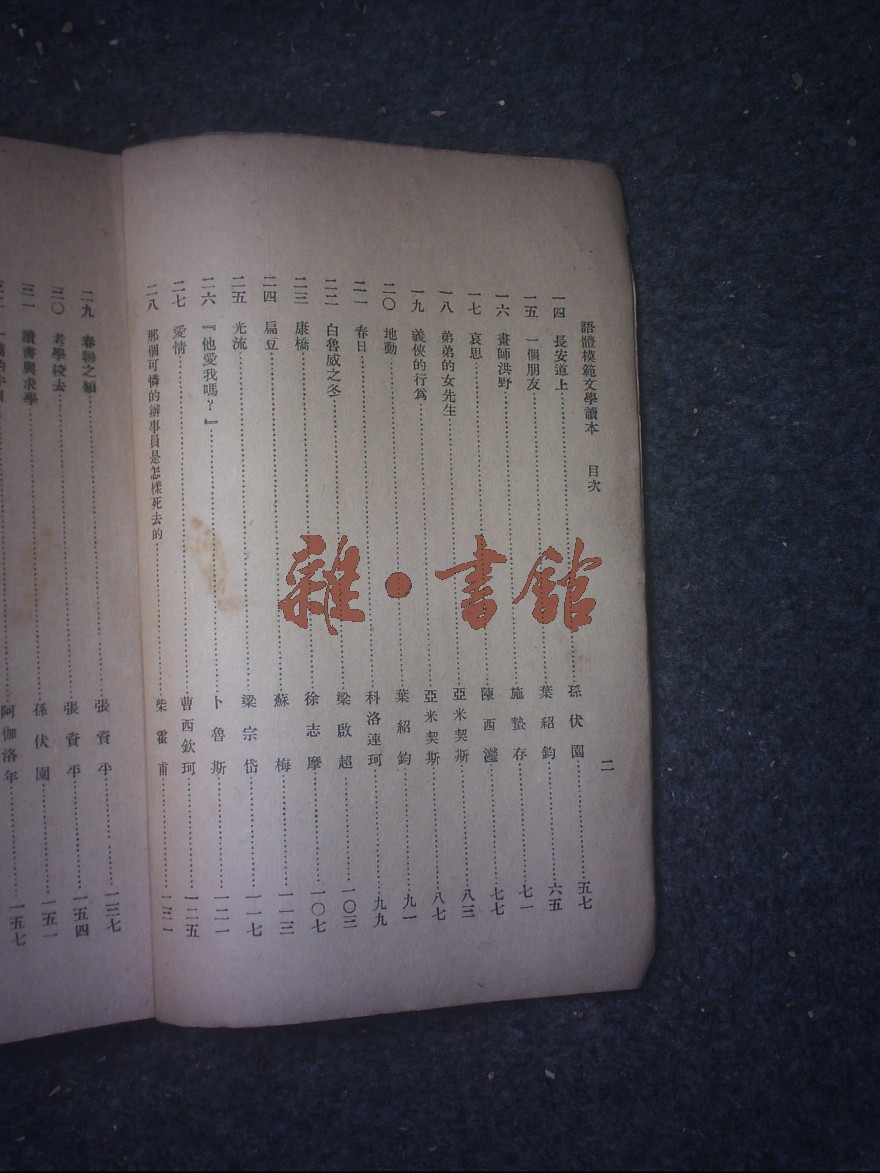 語體模範文學讀本 目次
二
一四 長安道上………孫伏園………五七
一五 一個朋友………葉紹鈞………六五
一六 畫師洪野………施蟄存………七一
一七 哀思………陳西瀅………七七
一八 弟弟的女先生………亞米契斯………八三
一九 義俠的行爲………亞米契斯………八七
二〇 地動………葉紹鈞………九一
二一 春日………科洛連珂………九九
二二 白魯威之冬………梁啟超………一〇三
二三 康橋………徐志摩………一〇七
二四 扁豆………蘇梅………一一三
二五 光流………梁宗岱………一一七
二六 『他愛我嗎？』………卜魯斯………一二一
二七 愛情………曹西欽珂………一二五
二八 那個可憐的辦事員是怎樣死去的………柴霍甫………一三一
二九 春聯之類………張資平………一三七
三〇 考學校去………張資平………一五四
三一 讀書與求學………孫伏園………一五一
阿伽洛年………一五七
雜·書館